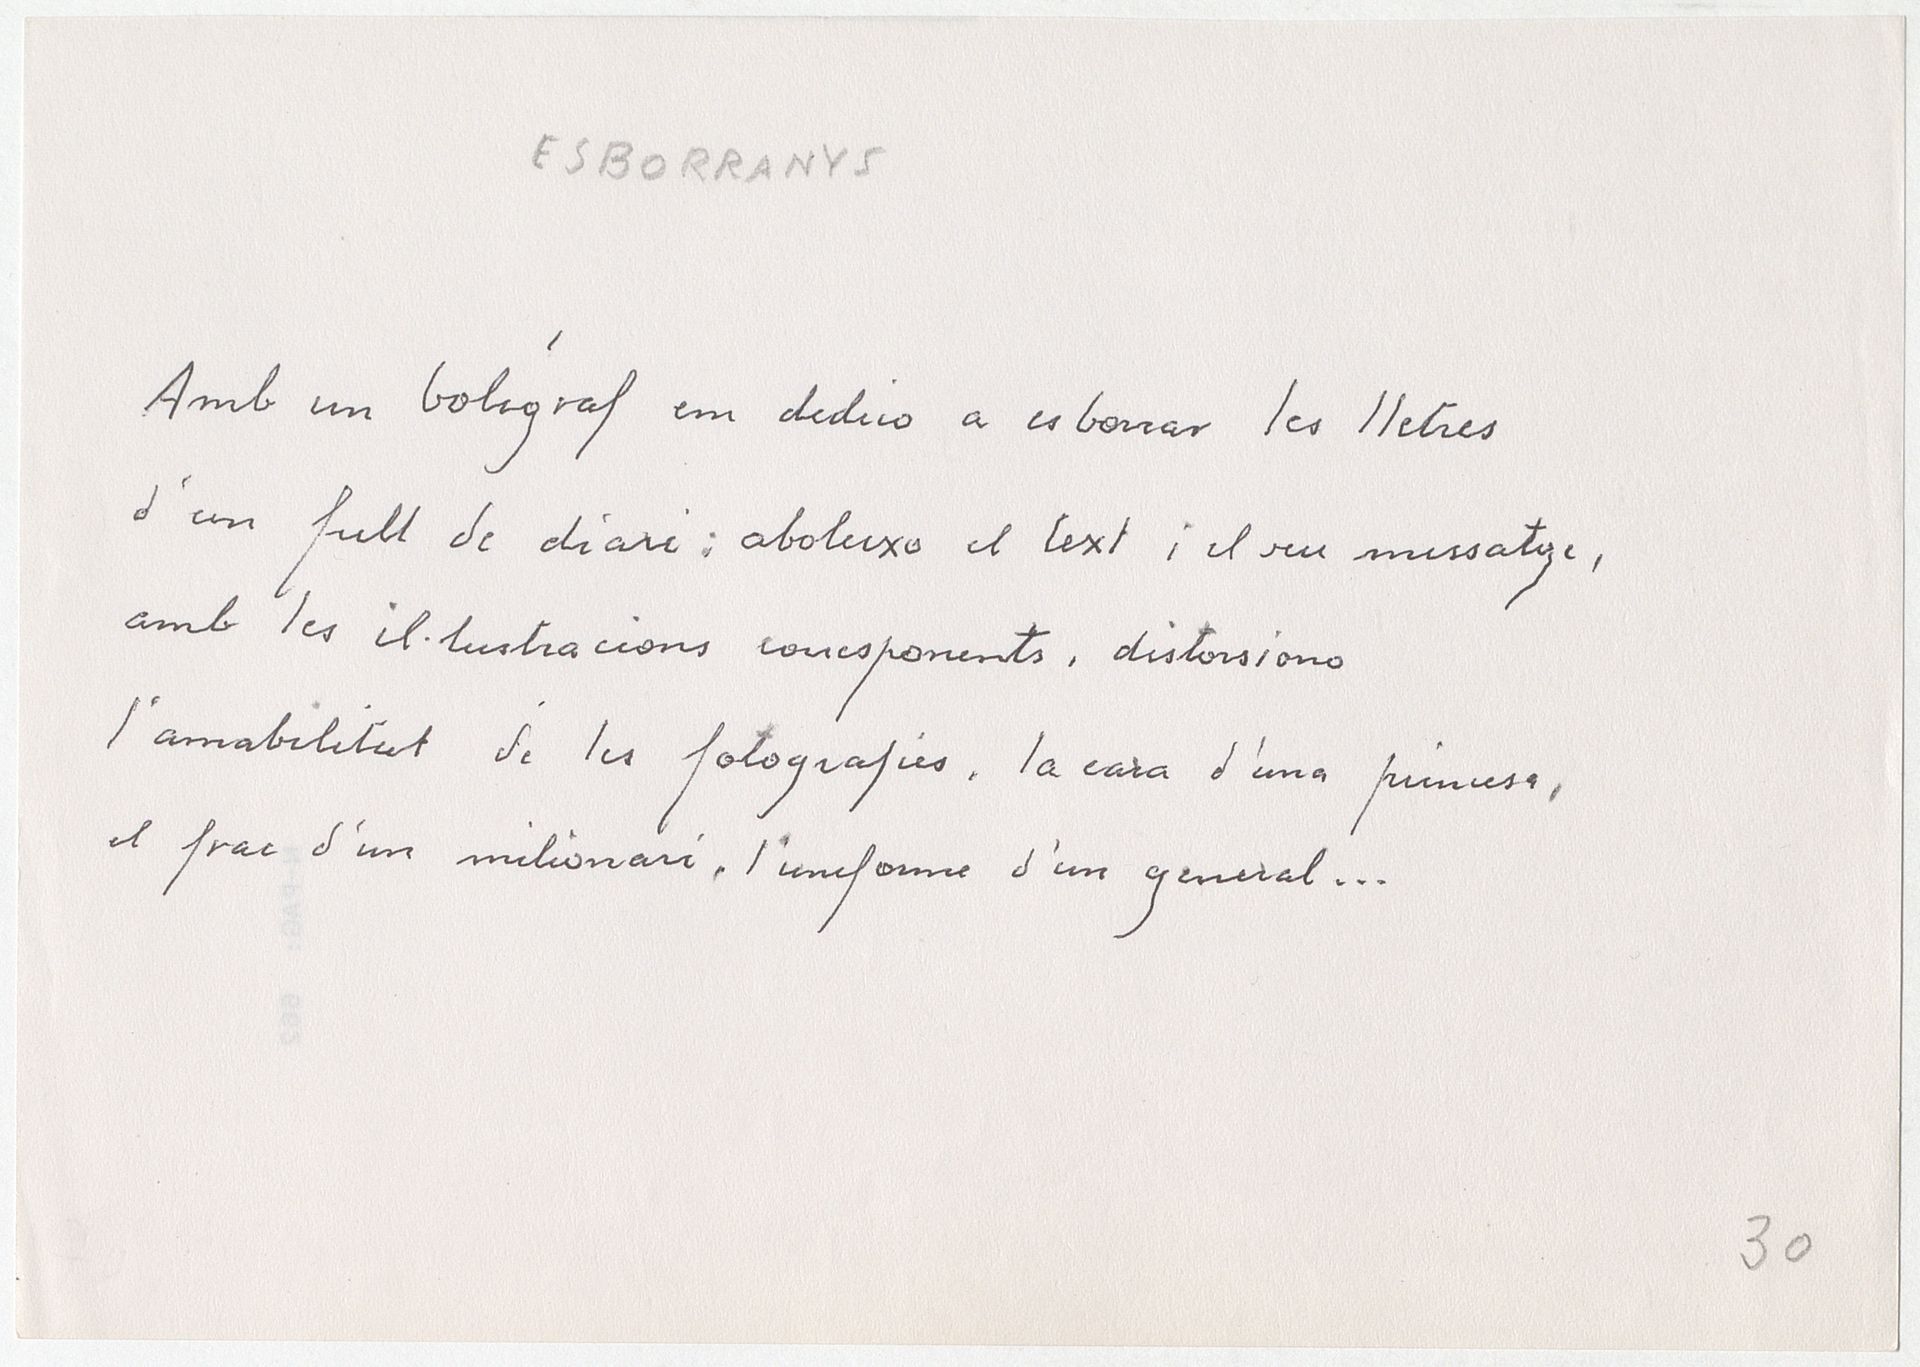 ESBORRANYS
Amb un bolígraf em dedico a esborrar les lletres
d'un full de diari; aboleixo el text i el seu missatge,
amb les il·lustracions corresponents, distorsiono
l'amabilitat de les fotografies, la cara d'una princesa,
el frac d'un milionari, l'uniforme d'un general...
30